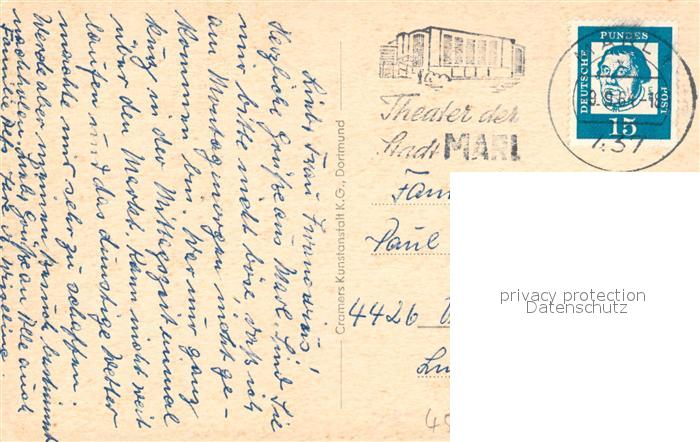 Liebe Frau
Herzliche Grüße aus Marl. Sind Sie
mir bitte nicht böse, daß ich
am Montagmorgen nicht ge-
kommen bin. War nur ganz
kurz in der Mittagszeit einmal
über den Markt. Kann nicht weit
laufen und das dunstige Wetter
machte mir sehr zu schaffen.
Werde aber meinen Besuch bestimmt
nachholen. Liebe Grüße an Alle auch
Familie
Cramers Kunstanstalt K.G., Dortmund
Theater der
Stadt MARL
DEUTSCHE
BUNDES
POST
15
9.9.64-18
Fam
Paul
4426
privacy protection
Datenschutz